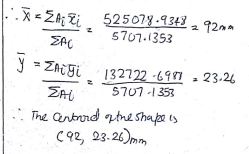 ∴ X̄ = ΣAᵢx̄ᵢ / ΣAᵢ = 525078.9348 / 5707.1353 = 92mm
ȳ = ΣAᵢȳᵢ / ΣAᵢ = 132722.6981 / 5707.1353 = 23.26
∴ The Centroid of the shape is
(92, 23.26)mm